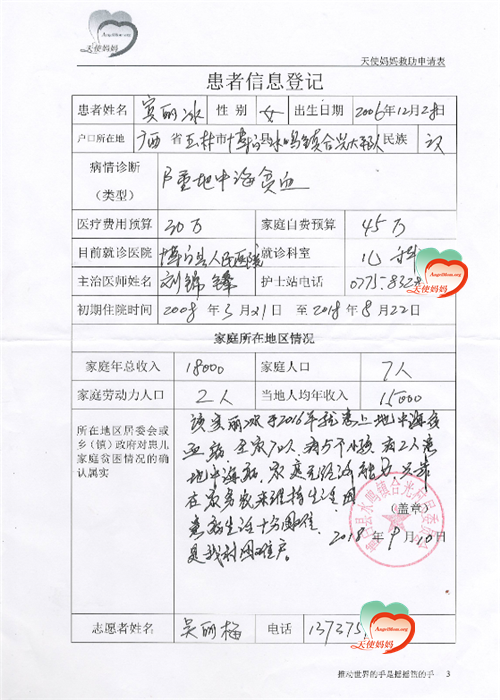 AngelMom.org
天使妈妈
天使妈妈救助申请表
患者信息登记
患者姓名 宾丽冰 性别 女 出生日期 2006年12月28日
户口所在地 广西省玉林市博白县水鸣镇合兴大车队 民族 汉
病情诊断
(类型)
β重地中海贫血
医疗费用预算 30万 家庭自费预算 45万
目前就诊医院 博白县人民医院 就诊科室 儿科
主治医师姓名 刘锦锋 护士站电话 0775-832
AngelMom.org
天使妈妈
初期住院时间 2008年3月21日 至 2018年8月22日
家庭所在地区情况
家庭年总收入 18000 家庭人口 7人
家庭劳动力人口 2人 当地人均年收入 15000
所在地区居委会或
乡(镇)政府对患儿
家庭贫困情况的确
认属实
该宾丽冰于2016年就患上地中海贫
血病,全家7人,有5个小孩,有2人患
地中海病,家庭无经济能力,只靠
在家务农来维持生活,因
患病生活十分困难,
是我村困难户。
(盖章)
2018年9月10日
志愿者姓名 吴丽梅 电话 137375
AngelMom.org
天使妈妈
推动世界的手是摇摇篮的手 3